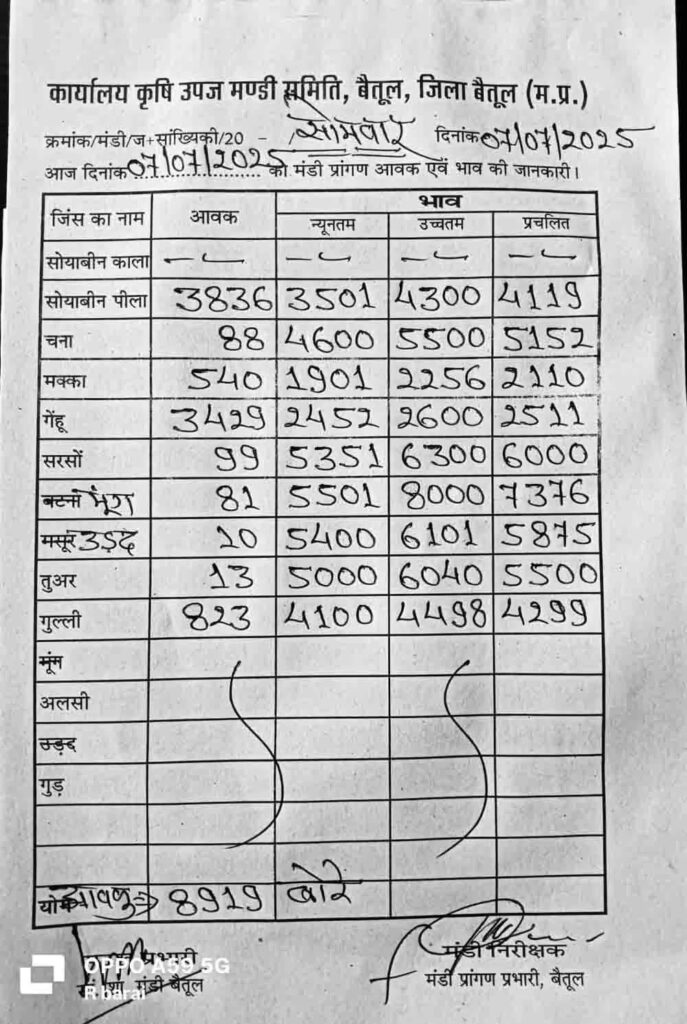 कार्यालय कृषि उपज मण्डी समिति, बैतूल, जिला बैतूल (म.प्र.)
क्रमांक/मंडी/ज+सांख्यिकी/20 - सोमवार दिनांक 07/07/2025
आज दिनांक 07/07/2025 को मंडी प्रांगण आवक एवं भाव की जानकारी।
जिंस का नाम आवक भाव
न्यूनतम उच्चतम प्रचलित
सोयाबीन काला — — — —
सोयाबीन पीला 3836 3501 4300 4119
चना 88 4600 5500 5152
मक्का 540 1901 2256 2110
गेंहू 3429 2452 2600 2511
सरसों 99 5351 6300 6000
बटना मूंग 81 5501 8000 7376
मसूर उड़द 10 5400 6101 5875
तुअर 13 5000 6040 5500
गुल्ली 823 4100 4498 4299
मूंग
अलसी
उड़द
गुड़
योग 8919 बोरे
प्रभारी मंडी निरीक्षक
मंडी बैतूल मंडी प्रांगण प्रभारी, बैतूल
OPPO A59 5G
R barai